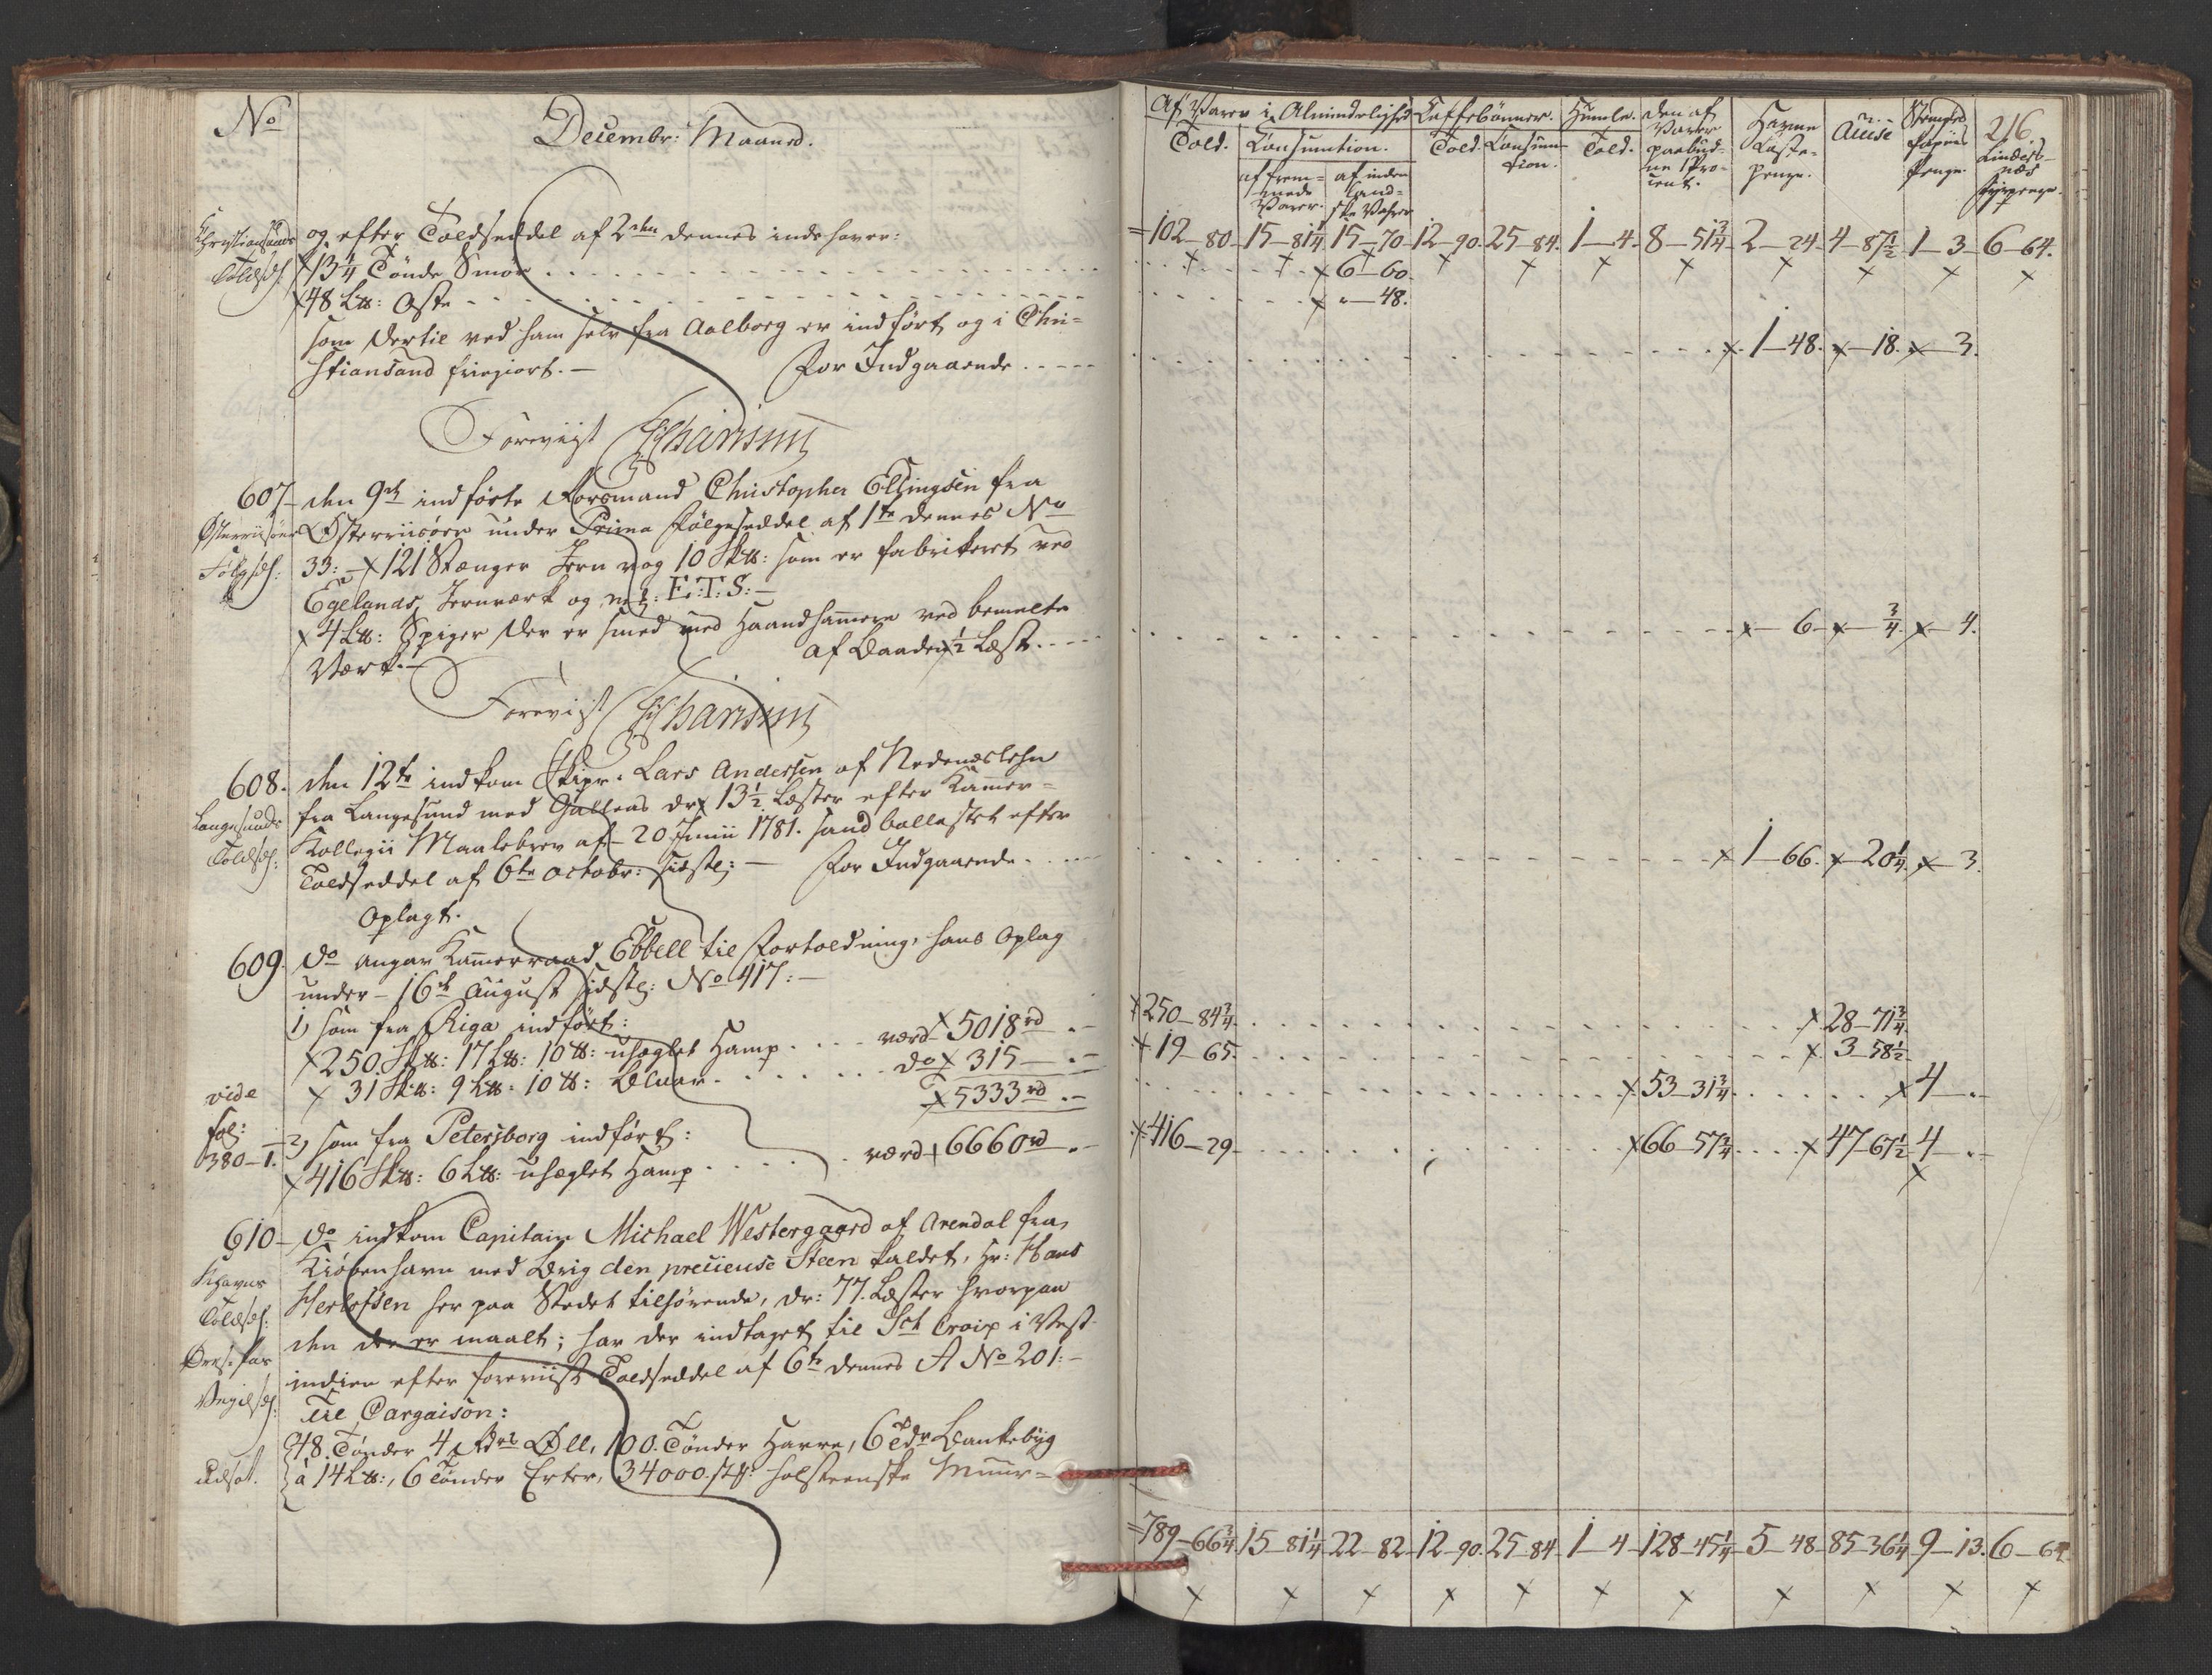 No
Decembr: Maaned.
Christiansands
Toldsed:
og efter Toldseddel af 2den dennes indehaver:
13 1/4 Tønde Smør
48 L℔: Oste
som dertil ved ham selv fra Aalborg er indført og i Chri=
stiansand friegiort. — For Indgaaende
Foreviist
607
Østerriisøers
Følgsed:
den 9de indførte Forsmand Christopher Ellingsen fra
Østerriisøer under Prima følgeseddel af 1te dennes No
33: — 121 Stænger Jern vog 10 Sk℔: som er fabrikeret ved
Egelands Jernværk og mkt: E:T:S: —
4 L℔: Spiger der er smed med Haandhammere ved bemelte
Værk. — af Baaden 1/2 Læst
Foreviist
608.
Langesunds
Toldsed:
den 12te indkom Skipr. Lars Andersen af Nedeneslehn
fra Langesund med Galleas dr. 13 1/2 Læster efter Kammer=
Kollegii Maalebrev af 20 Junii 1781. sandballastet efter
Toldseddel af 6te octobr: sidstl: — For Indgaaende
Oplagt.
609.
do angav Kammerraad Ebbell til Fortoldning, hans Oplag
under — 16de August sidstl: No 417: —
1, som fra Riga indført:
250 Sk℔: 17 L℔: 10 ℔: uheglet Hamp værd 5018 rd . —
31 Sk℔: 9 L℔: 10 ℔: do 315 — . —
5333 rd . —
vide
fol:
380 — 1.
2, som fra Petersborg indført:
416 Sk℔: 6 L℔: uheglet Hamp værd 6660 rd . —
610
Khavns
Toldsed:
do indkom Capitain Michael Westergaard af Arendal fra
Kiøbenhavn med Brig den precieuse Steen kaldet, Hr: Hans
Herlofsen her paa Stedet tilhørende, dr: 77. Læster hvorpaa
den der er maalt; har der indtaget til Sct Croix i Vest=
indien efter foreviist Toldseddel af 6te dennes A No 201: —
Til Cargaison:
48. Tønder 4 Øll, 100. Tønder Havre, 6 Tdr Bankebyg
à 14 L℔:, 6 Tønder Erter, 34000. stk: holsteenske Muur=
216.
Af Varer i Almindelighed
Told.
Consumtion.
af frem=
mede
Varer.
af inden
land=
ske Vahrer
Kaffebønner.
Told.
Consum=
tion.
Humle.
Told.
Den af
Varer
paabud=
ne 1 Pro=
cent.
Havne
Læste=
penge.
Accise
Stemplet
Papiirs
Penge.
Lindes=
næs
Fyrpenge.
=102—80 15—81 1/4 15—70 12—90 25—84 1—4 8—51 3/4 2—24 4—87 1/2 1—3 6—64.
6—60
„—48.
1—48. —18. —3.
—6 — 3/4 —4.
1—66. —20 1/4 —3.
250—84 3/4 28—71 3/4
19—65 3—58 1/2
53—31 3/4 4—.—
416—29 66—57 3/4 47—67 1/2 4—.—
=789—66 3/4 15—81 1/4 22—82 12—90 25—84 1—4 128—45 1/4 5—48 85—36 1/4 9—13. 6—64